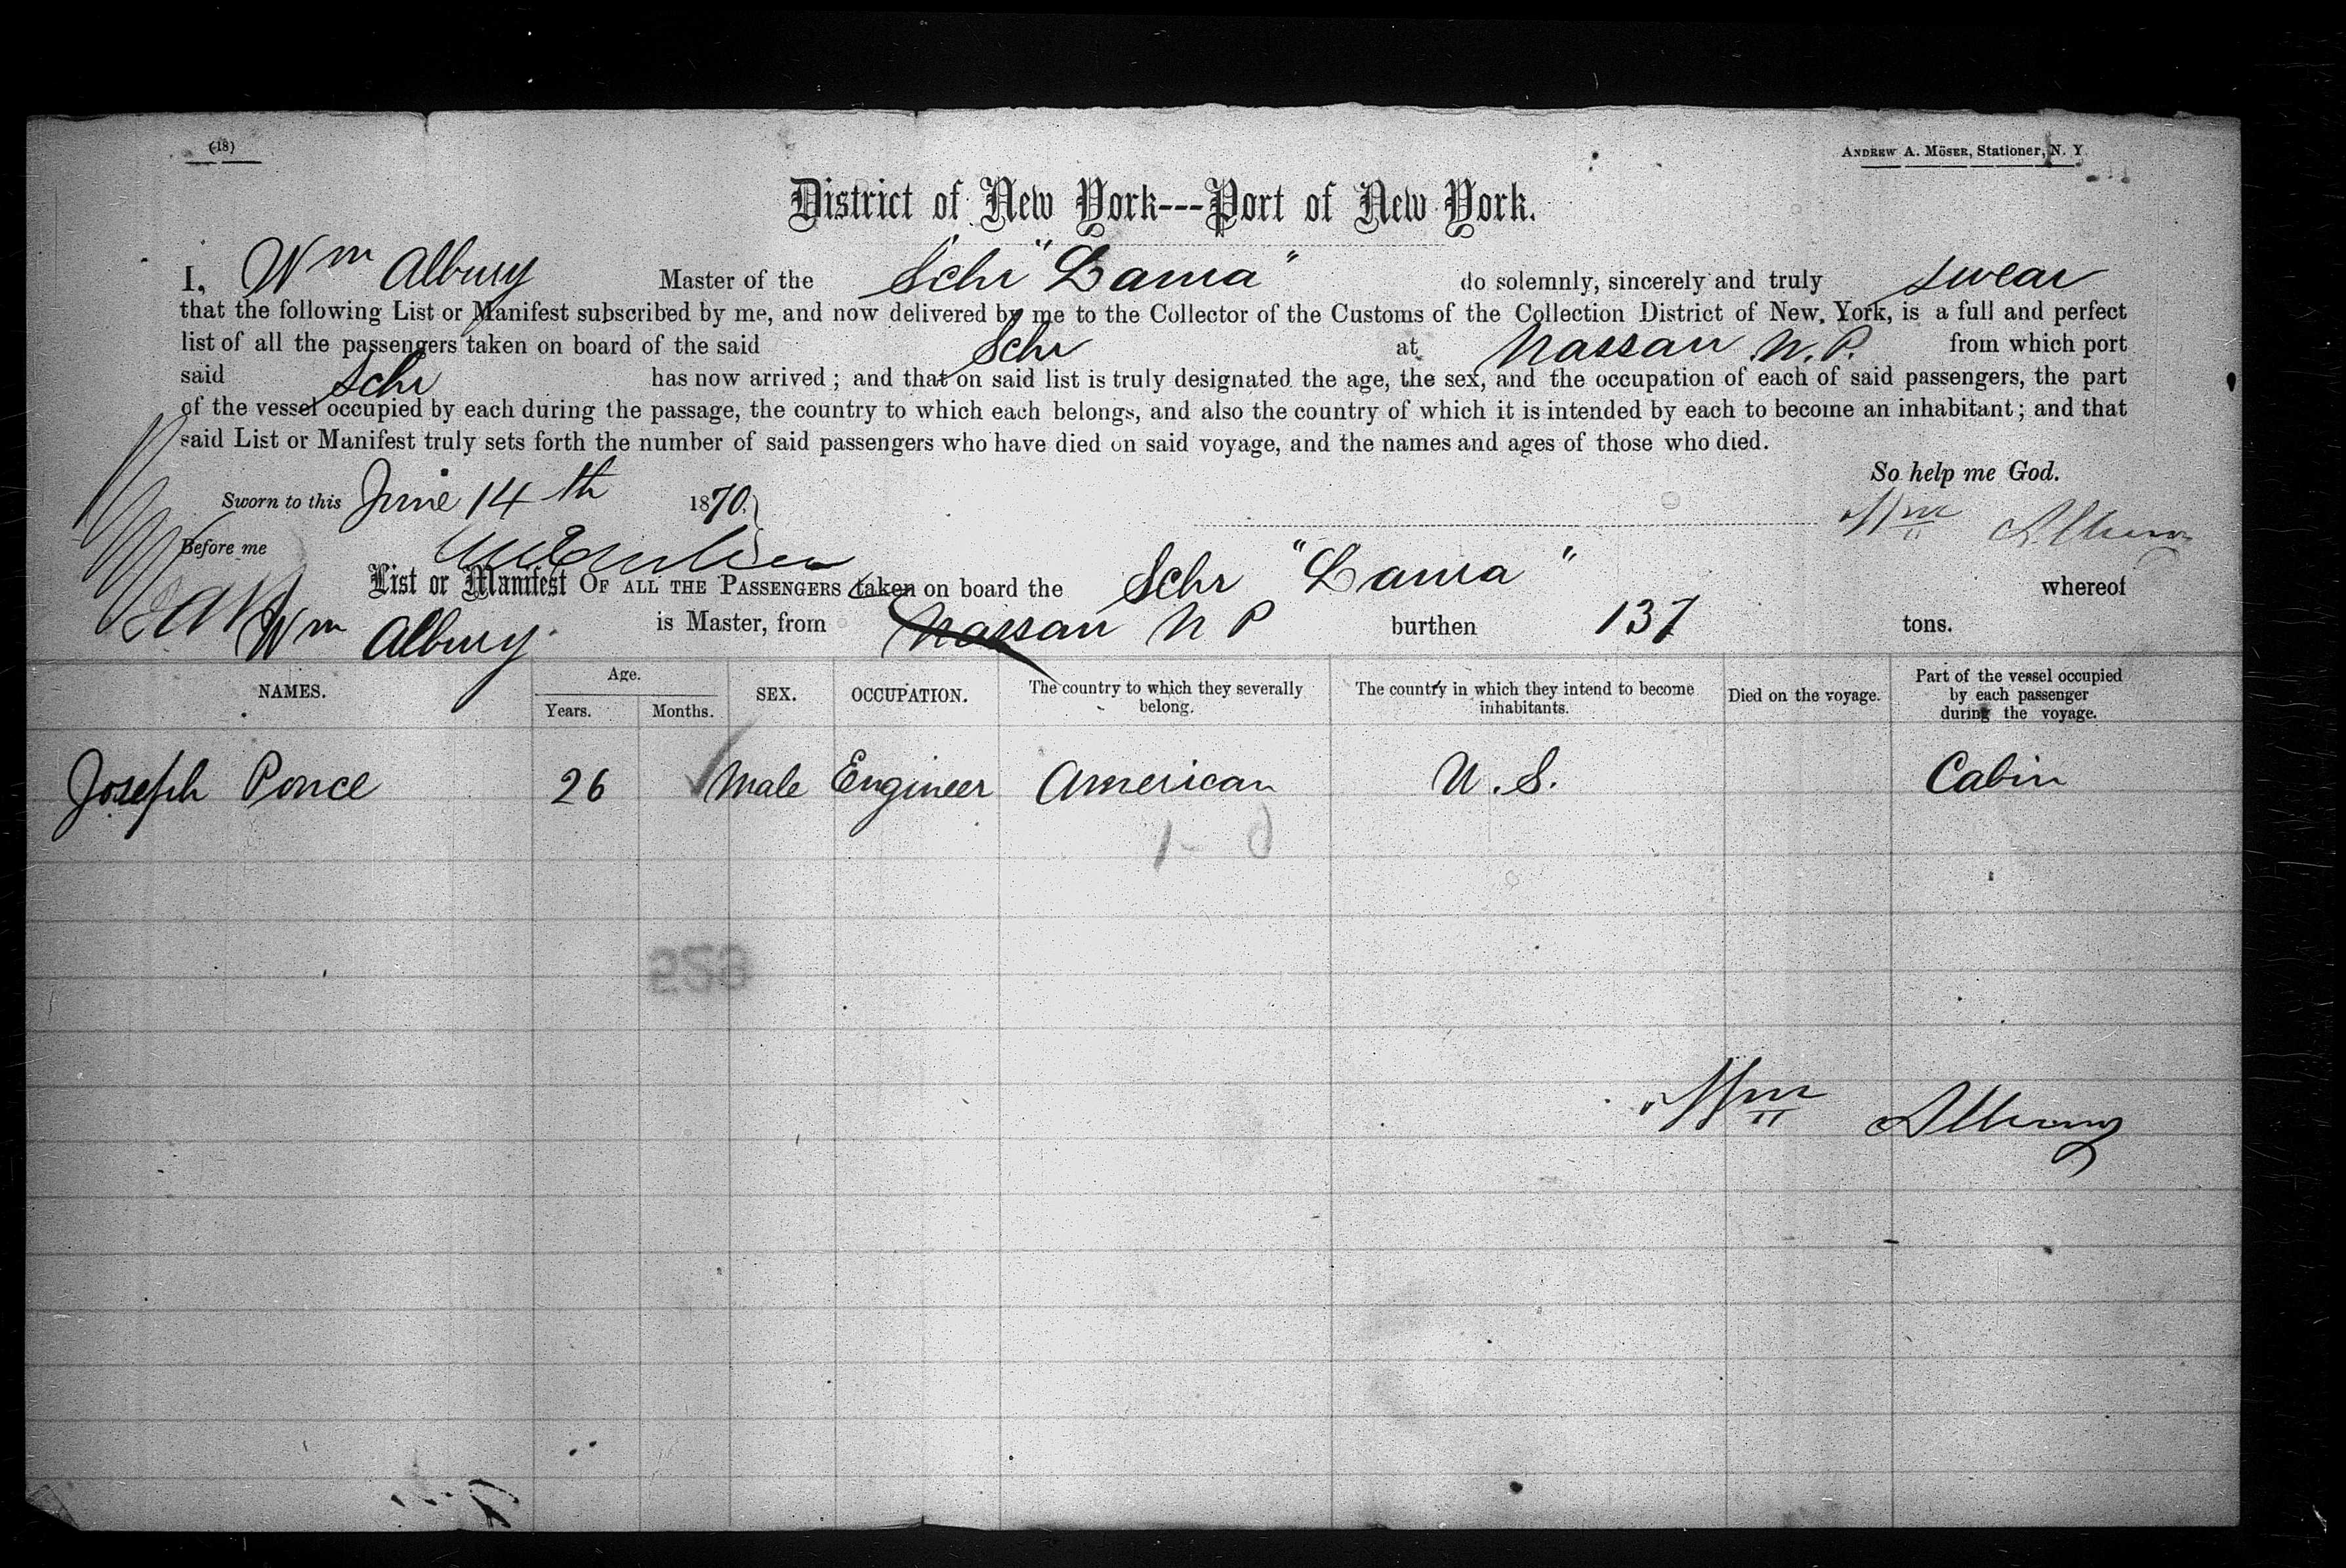 (18)
ANDREW A. MÖSER, Stationer, N. Y.
District of New York---Port of New York.
I, Wm Albury Master of the Schr "Laura" do solemnly, sincerely and truly swear
that the following List or Manifest subscribed by me, and now delivered by me to the Collector of the Customs of the Collection District of New York, is a full and perfect
list of all the passengers taken on board of the said Schr at Nassau N.P. from which port
said Schr has now arrived; and that on said list is truly designated the age, the sex, and the occupation of each of said passengers, the part
of the vessel occupied by each during the passage, the country to which each belongs, and also the country of which it is intended by each to become an inhabitant; and that
said List or Manifest truly sets forth the number of said passengers who have died on said voyage, and the names and ages of those who died.
So help me God.
Sworn to this June 14th 1870.
Wm Albury
Before me
List or Manifest OF ALL THE PASSENGERS taken on board the Schr "Laura" whereof
Wm Albury is Master, from Nassau N P burthen 137 tons.
NAMES. Age. Years. Months. SEX. OCCUPATION. The country to which they severally belong. The country in which they intend to become inhabitants. Died on the voyage. Part of the vessel occupied by each passenger during the voyage.
Joseph Ponce 26 Male Engineer American U.S. Cabin
Wm Albury